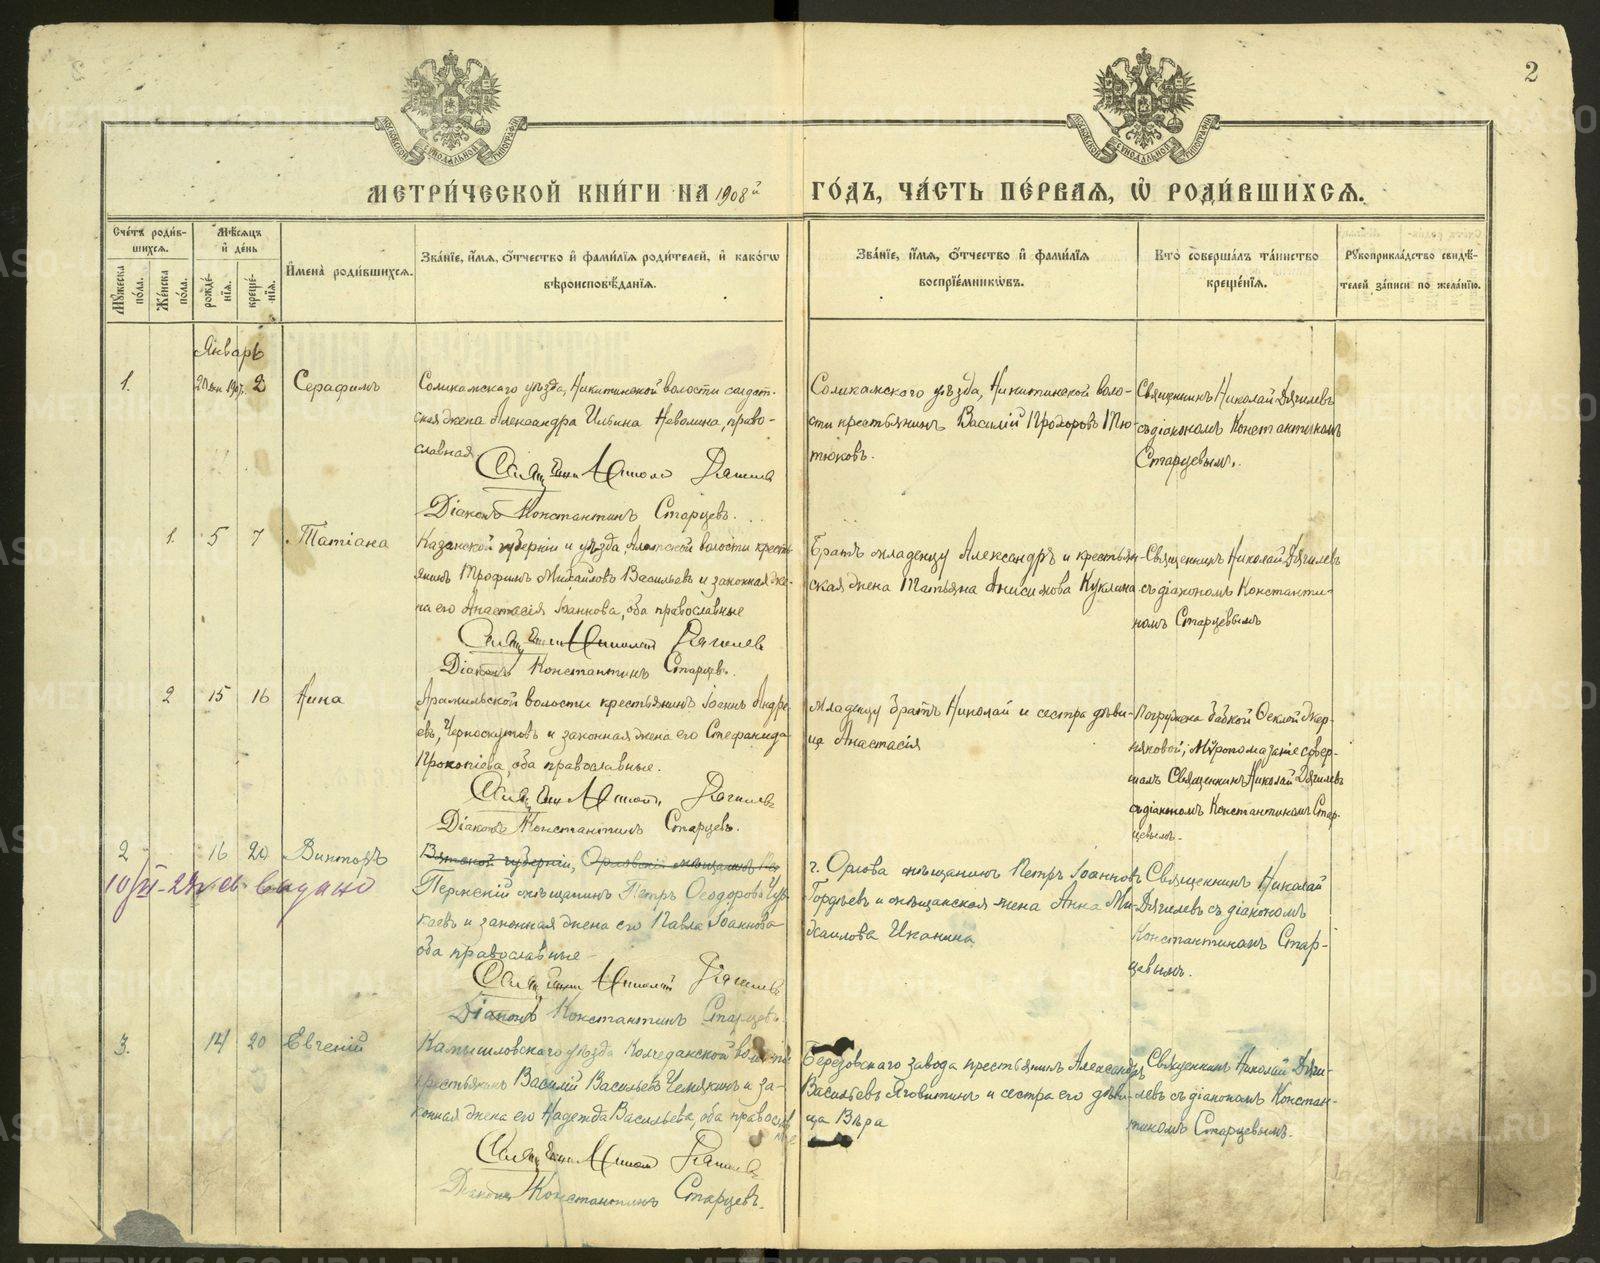 2
МОСКОВСКОЙ СѴНОДАЛЬНОЙ ТИПОГРАФІИ
МОСКОВСКОЙ СѴНОДАЛЬНОЙ ТИПОГРАФІИ
МЕТРИ́ЧЕСКОЙ КНИ́ГИ НА 1908й ГО́ДЪ, ЧА́СТЬ ПЕ́РВАЯ, Ѡ РОДИ́ВШИХСЯ.
Сче́тъ роди́в-
шихся.
Мꙋ́жеска по́ла.
Же́нска по́ла.
Мѣ́сяцъ
и́ де́нь
рожде́-
нїя.
креще́-
нїя.
И҆мена̀ роди́вшихся.
Зва́нїе, и҆́мя, ѻ҆́тчество и҆ фами́лїя роди́телей, и҆ како́гѡ
вѣроисповѣ́данїя.
Зва́нїе, и҆́мя, ѻ҆́тчество и҆ фами́лїя
воспрїе́мникѡвъ.
Кто̀ соверша́лъ та́инство
креще́нїя.
Рꙋкоприкла́дство свидѣ́-
телей за́писи по жела́нїю.
Январь
1.
2
Серафимъ
Соликамскаго уѣзда, Никитинской волости солдат-
ская жена Александра Ильина Неволина, право-
славная
Священникъ Николай Дягилевъ
Діаконъ Константинъ Старцевъ.
Соликамскаго уѣзда, Никитинской воло-
сти крестьянинъ Василій Прохоровъ Тю-
тюковъ.
Священникъ Николай Дягилевъ
съ діакономъ Константиномъ
Старцевымъ.
1.
5
7
Татіана
Казанской губерніи и уѣзда, волости кресть-
янинъ Трофимъ Михайловъ Васильевъ и законная же-
на его Анастасія Іоаннова, оба православные
Священникъ Николай Дягилевъ
Діаконъ Константинъ Старцевъ.
Братъ младенцу Александръ и крестьян-
ская жена Татьяна Анисимова Куклина
Священникъ Николай Дягилевъ
съ діакономъ Константи-
номъ Старцевымъ
2
15
16
Нина
Арамильской волости крестьянинъ Іоаннъ Андре-
евъ, Черноскутовъ и законная жена его Стефанида
Прокопіева, оба православные.
Священникъ Николай Дягилевъ
Діаконъ Константинъ Старцевъ.
Младенцу братъ Николай и сестра дѣви-
ца Анастасія
Погружена бабкой Ѳеклой
Мѵропомазаніе совер-
шалъ Священникъ Николай Дягилевъ
съ діакономъ Константиномъ Стар-
цевымъ.
2
16
20
Викторъ
10/VI-24 г. выдано
Вятской губерніи, Орловскій мѣщанинъ
Пермскій мѣщанинъ Петръ Ѳеодоровъ Чур-
каевъ и законная жена его Павла Іоаннова
оба православные
Священникъ Николай Дягилевъ
Діаконъ Константинъ Старцевъ.
г. Орлова мѣщанинъ Петръ Іоанновъ
Гордѣевъ и мѣщанская жена Анна Ми-
хаилова Иканина
Священникъ Николай
Дягилевъ съ діакономъ
Константиномъ Стар-
цевымъ.
3.
14
20
Евгеній
Камышловскаго уѣзда Колчеданской волости
крестьянинъ Василій Васильевъ Чемякинъ и за-
конная жена его Надежда Васильева, оба православ-
ные
Священникъ Николай Дягилевъ
Діаконъ Константинъ Старцевъ.
Березовскаго завода крестьянинъ Александръ
Васильевъ Яговитинъ и сестра его дѣви-
ца Вѣра
Священникъ Николай Дяги-
левъ съ діакономъ Констан-
тиномъ Старцевымъ.